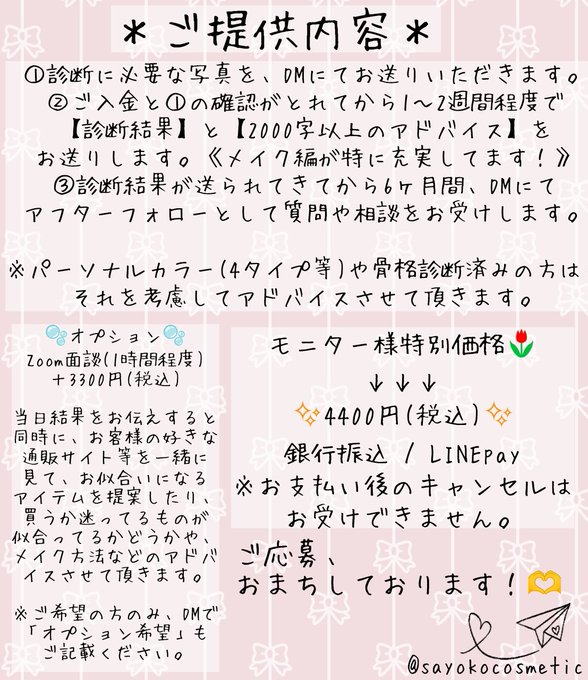 ＊ご提供内容＊
①診断に必要な写真を、DMにてお送りいただきます。
②ご入金と①の確認がとれてから1〜2週間程度で
【診断結果】と【2000字以上のアドバイス】を
お送りします。《メイク編が特に充実してます！》
③診断結果が送られてきてから6ヶ月間、DMにて
アフターフォローとして質問や相談をお受けします。
※パーソナルカラー(4タイプ等)や骨格診断済みの方は
それを考慮してアドバイスさせて頂きます。
🫧オプション🫧
Zoom面談(1時間程度)
＋3300円(税込)
当日結果をお伝えすると
同時に、お客様の好きな
通販サイト等を一緒に
見て、お似合いになる
アイテムを提案したり、
買うか迷ってるものが
似合ってるかどうかや、
メイク方法などのアドバ
イスさせて頂きます。
※ご希望の方のみ、DMで
「オプション希望」も
ご記載ください。
モニター様特別価格🌷
↓↓↓
✨4400円(税込)✨
銀行振込 / LINEpay
※お支払い後のキャンセルは
お受けできません。
ご応募、
おまちしております！🫶
@sayokocosmetic